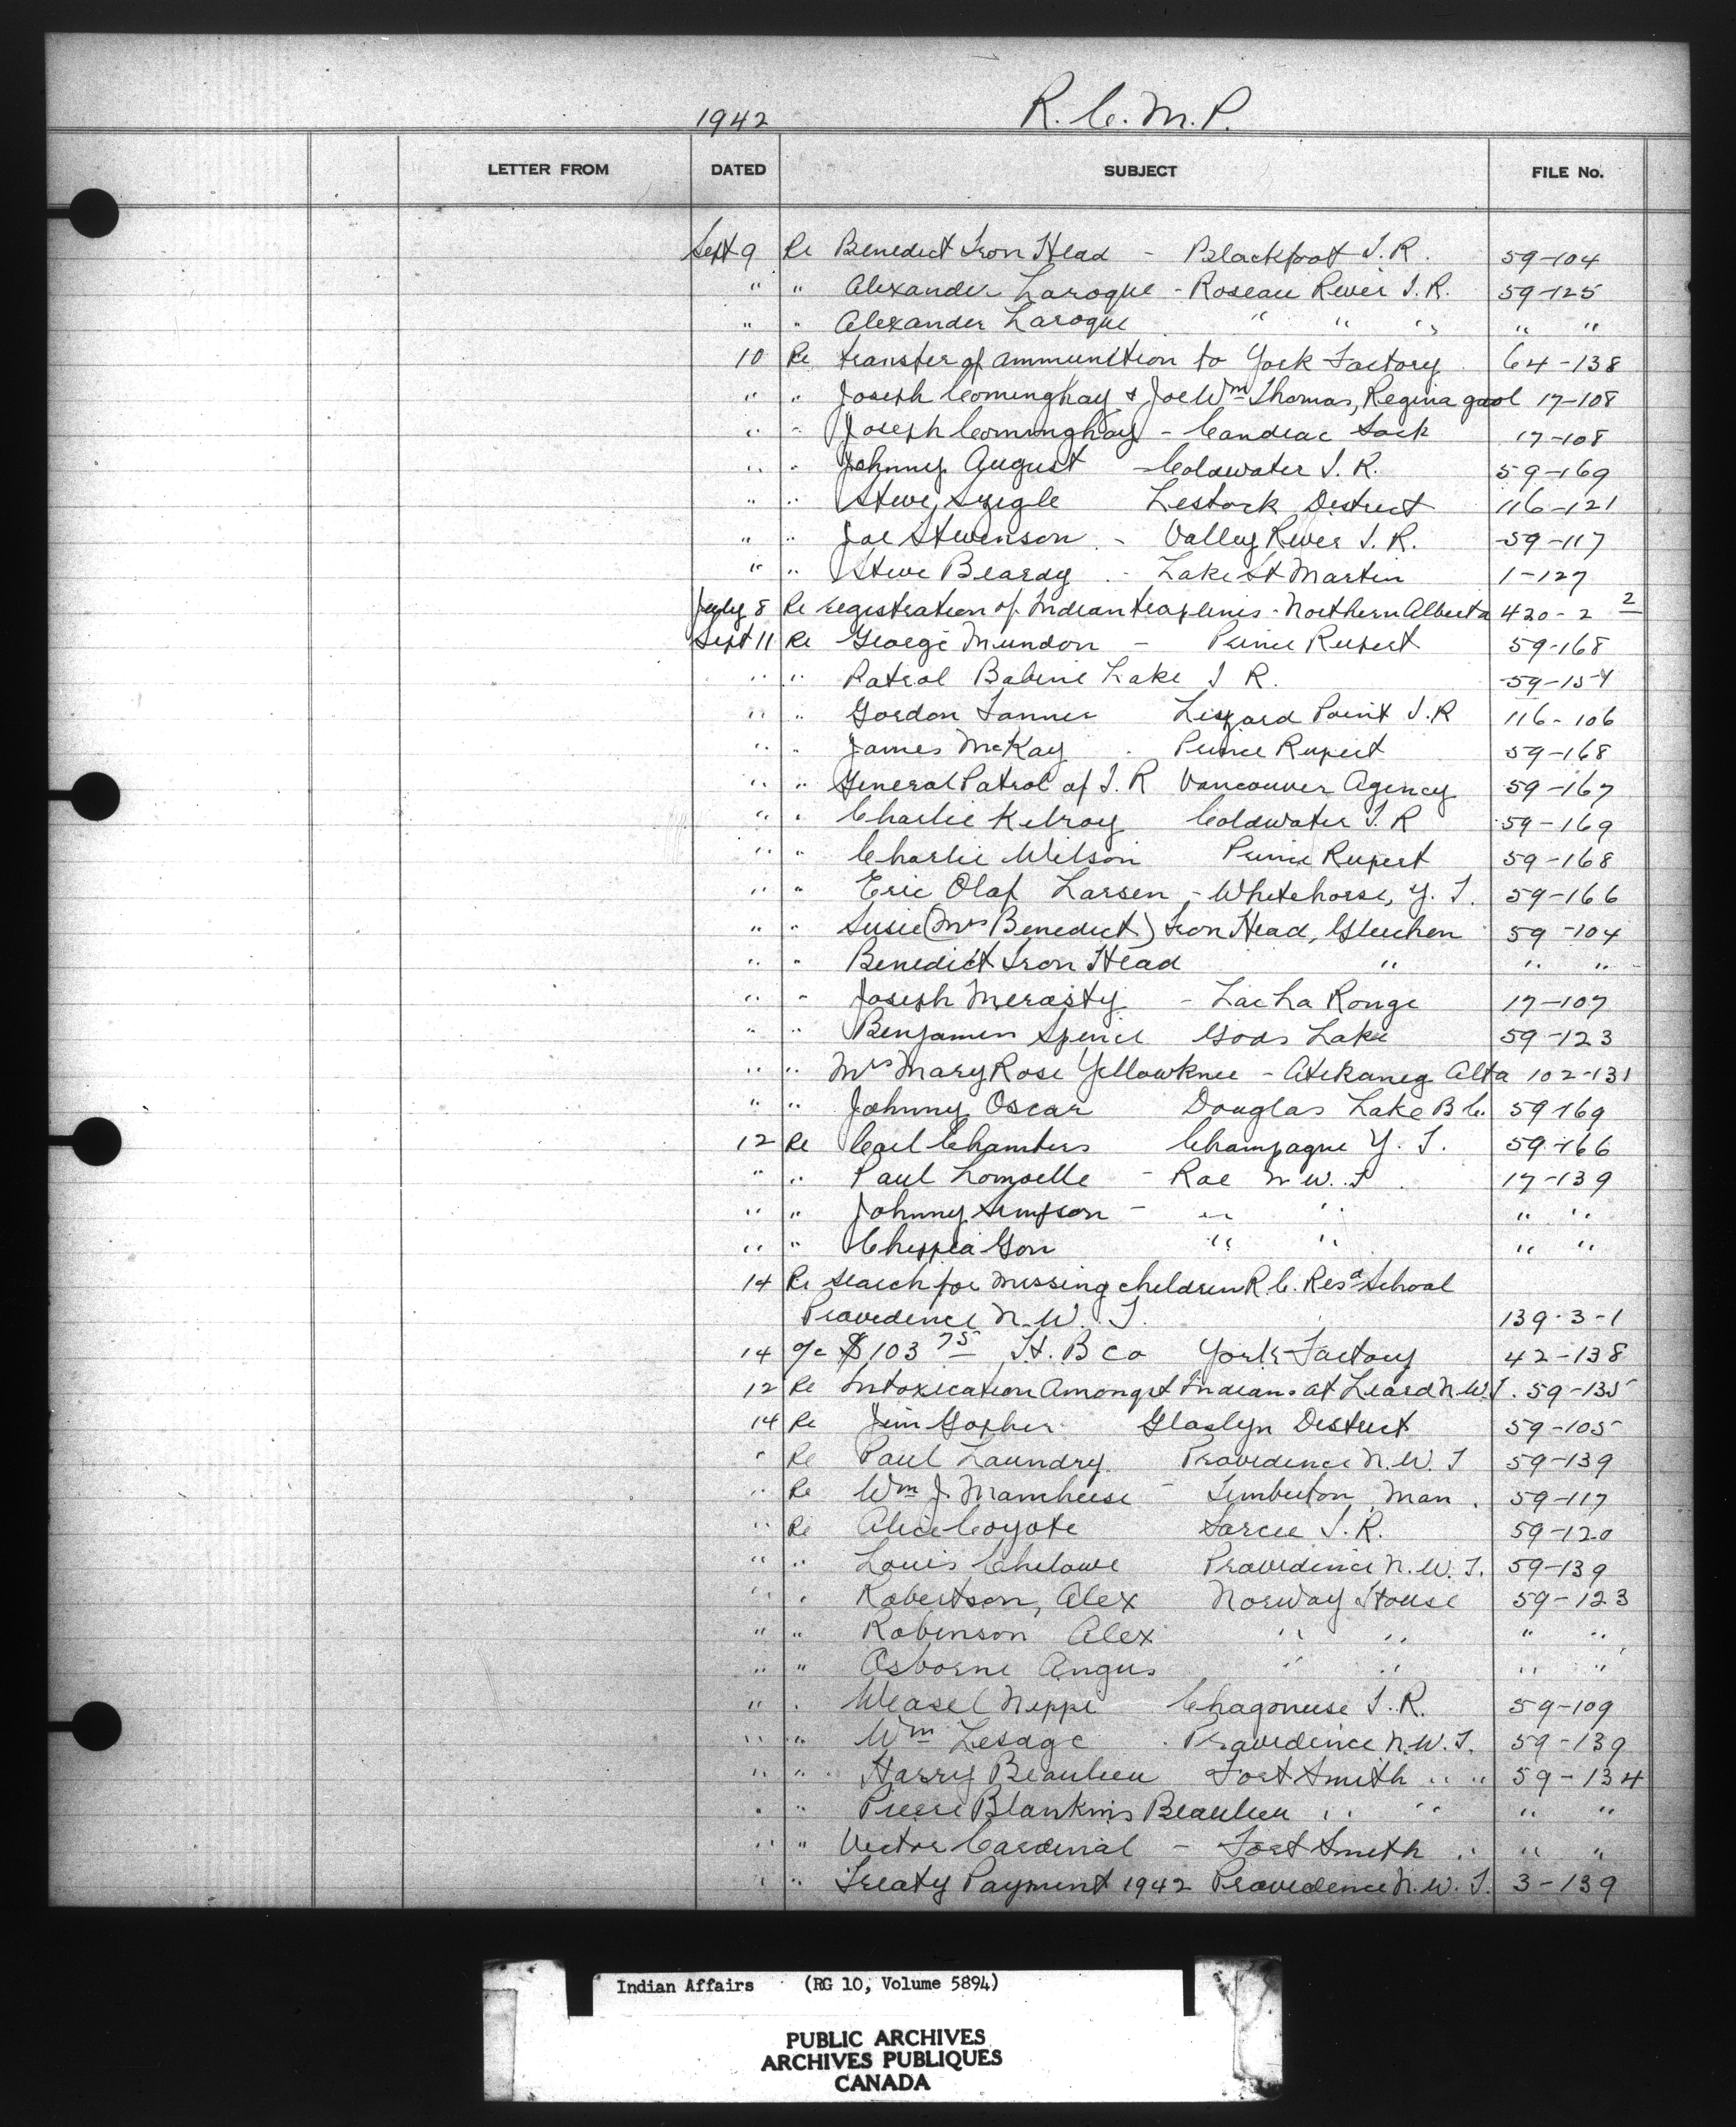 1942 R. C. M. P.
LETTER FROM DATED SUBJECT FILE No.
Sept 9 Re Benedict Iron Head - Blackfoot I.R. 59-104
" " Alexander Laroque - Roseau River I.R. 59-125
" " Alexander Laroque " " " " "
10 Re transfer of ammunition to York Factory 64-138
" " Joseph Cominghay & Joe Wm Thomas, Regina gaol 17-108
" " Joseph Cominghay - Candiac Sask 17-108
" " Johnny August - Coldwater I.R. 59-169
" " Steve Lestock District 116-121
" " Joe Stevenson - Valley River I.R. 59-117
" " Steve Beardy - Lake St Martin 1-127
July 8 Re registration of Indian traplines - Northern Alberta 420-2 2
Sept 11 Re George Mundon - Prince Rupert 59-168
" " Patrol Babine Lake I R. 59-154
" " Gordon Tanner Lizard Point I.R 116-106
" " James McKay - Prince Rupert 59-168
" " General Patrol of I.R Vancouver Agency 59-167
" " Charlie Kilroy Coldwater I.R 59-169
" " Charlie Wilson Prince Rupert 59-168
" " Eric Olaf Larsen - Whitehorse, Y. T. 59-166
" " Susie (Mrs Benedict) Iron Head, Gleichen 59-104
" " Benedict Iron Head " " "
" " Joseph Merasty - Lac La Ronge 17-107
" " Benjamin Spence Gods Lake 59-123
" " Mrs Mary Rose Yellowknee - Atikameg Alta 102-131
" " Johnny Oscar Douglas Lake B C. 59-169
12 Re Carl Chambers Champagne Y. T. 59-166
" " Paul Rae N.W.T. 17-139
" " Johnny Simpson - " " " "
" " " " " "
14 Re search for missing children R.C. Resd School
Providence N.W.T. 139-3-1
14 o/c $103 75 H. B Co York Factory 42-138
12 Re Intoxication Amongst Indians at Liard N.W.T. 59-135
14 Re Jim Gopher Glaslyn District 59-105
" Re Paul Laundry Providence N.W.T 59-139
" Re Wm J. - Timberton Man. 59-117
" Re Alice Coyote Sarcee I.R. 59-120
" " Louis Providence N.W.T. 59-139
" " Robertson, Alex Norway House 59-123
" " Robinson Alex " " " "
" " Osborne Angus " " " "
" " Weasel Neppe I.R. 59-109
" " Wm Lesage - Providence N.W.T. 59-139
" " Harry Beaulieu Fort Smith " " 59-134
" " Pierre Beaulieu " " " "
" " Victor Cardinal - Fort Smith " " "
" " Treaty Payment 1942 Providence N.W.T. 3-139
Indian Affairs (RG 10, Volume 5894)
PUBLIC ARCHIVES
ARCHIVES PUBLIQUES
CANADA